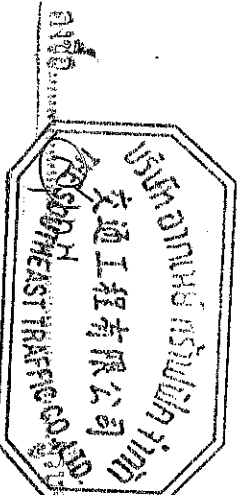 บริษัท อาคเนย์ ทร้าฟฟิค จำกัด
交通工程有限公司
SOUTHEAST TRAFFIC CO.,LTD.
ลงชื่อ